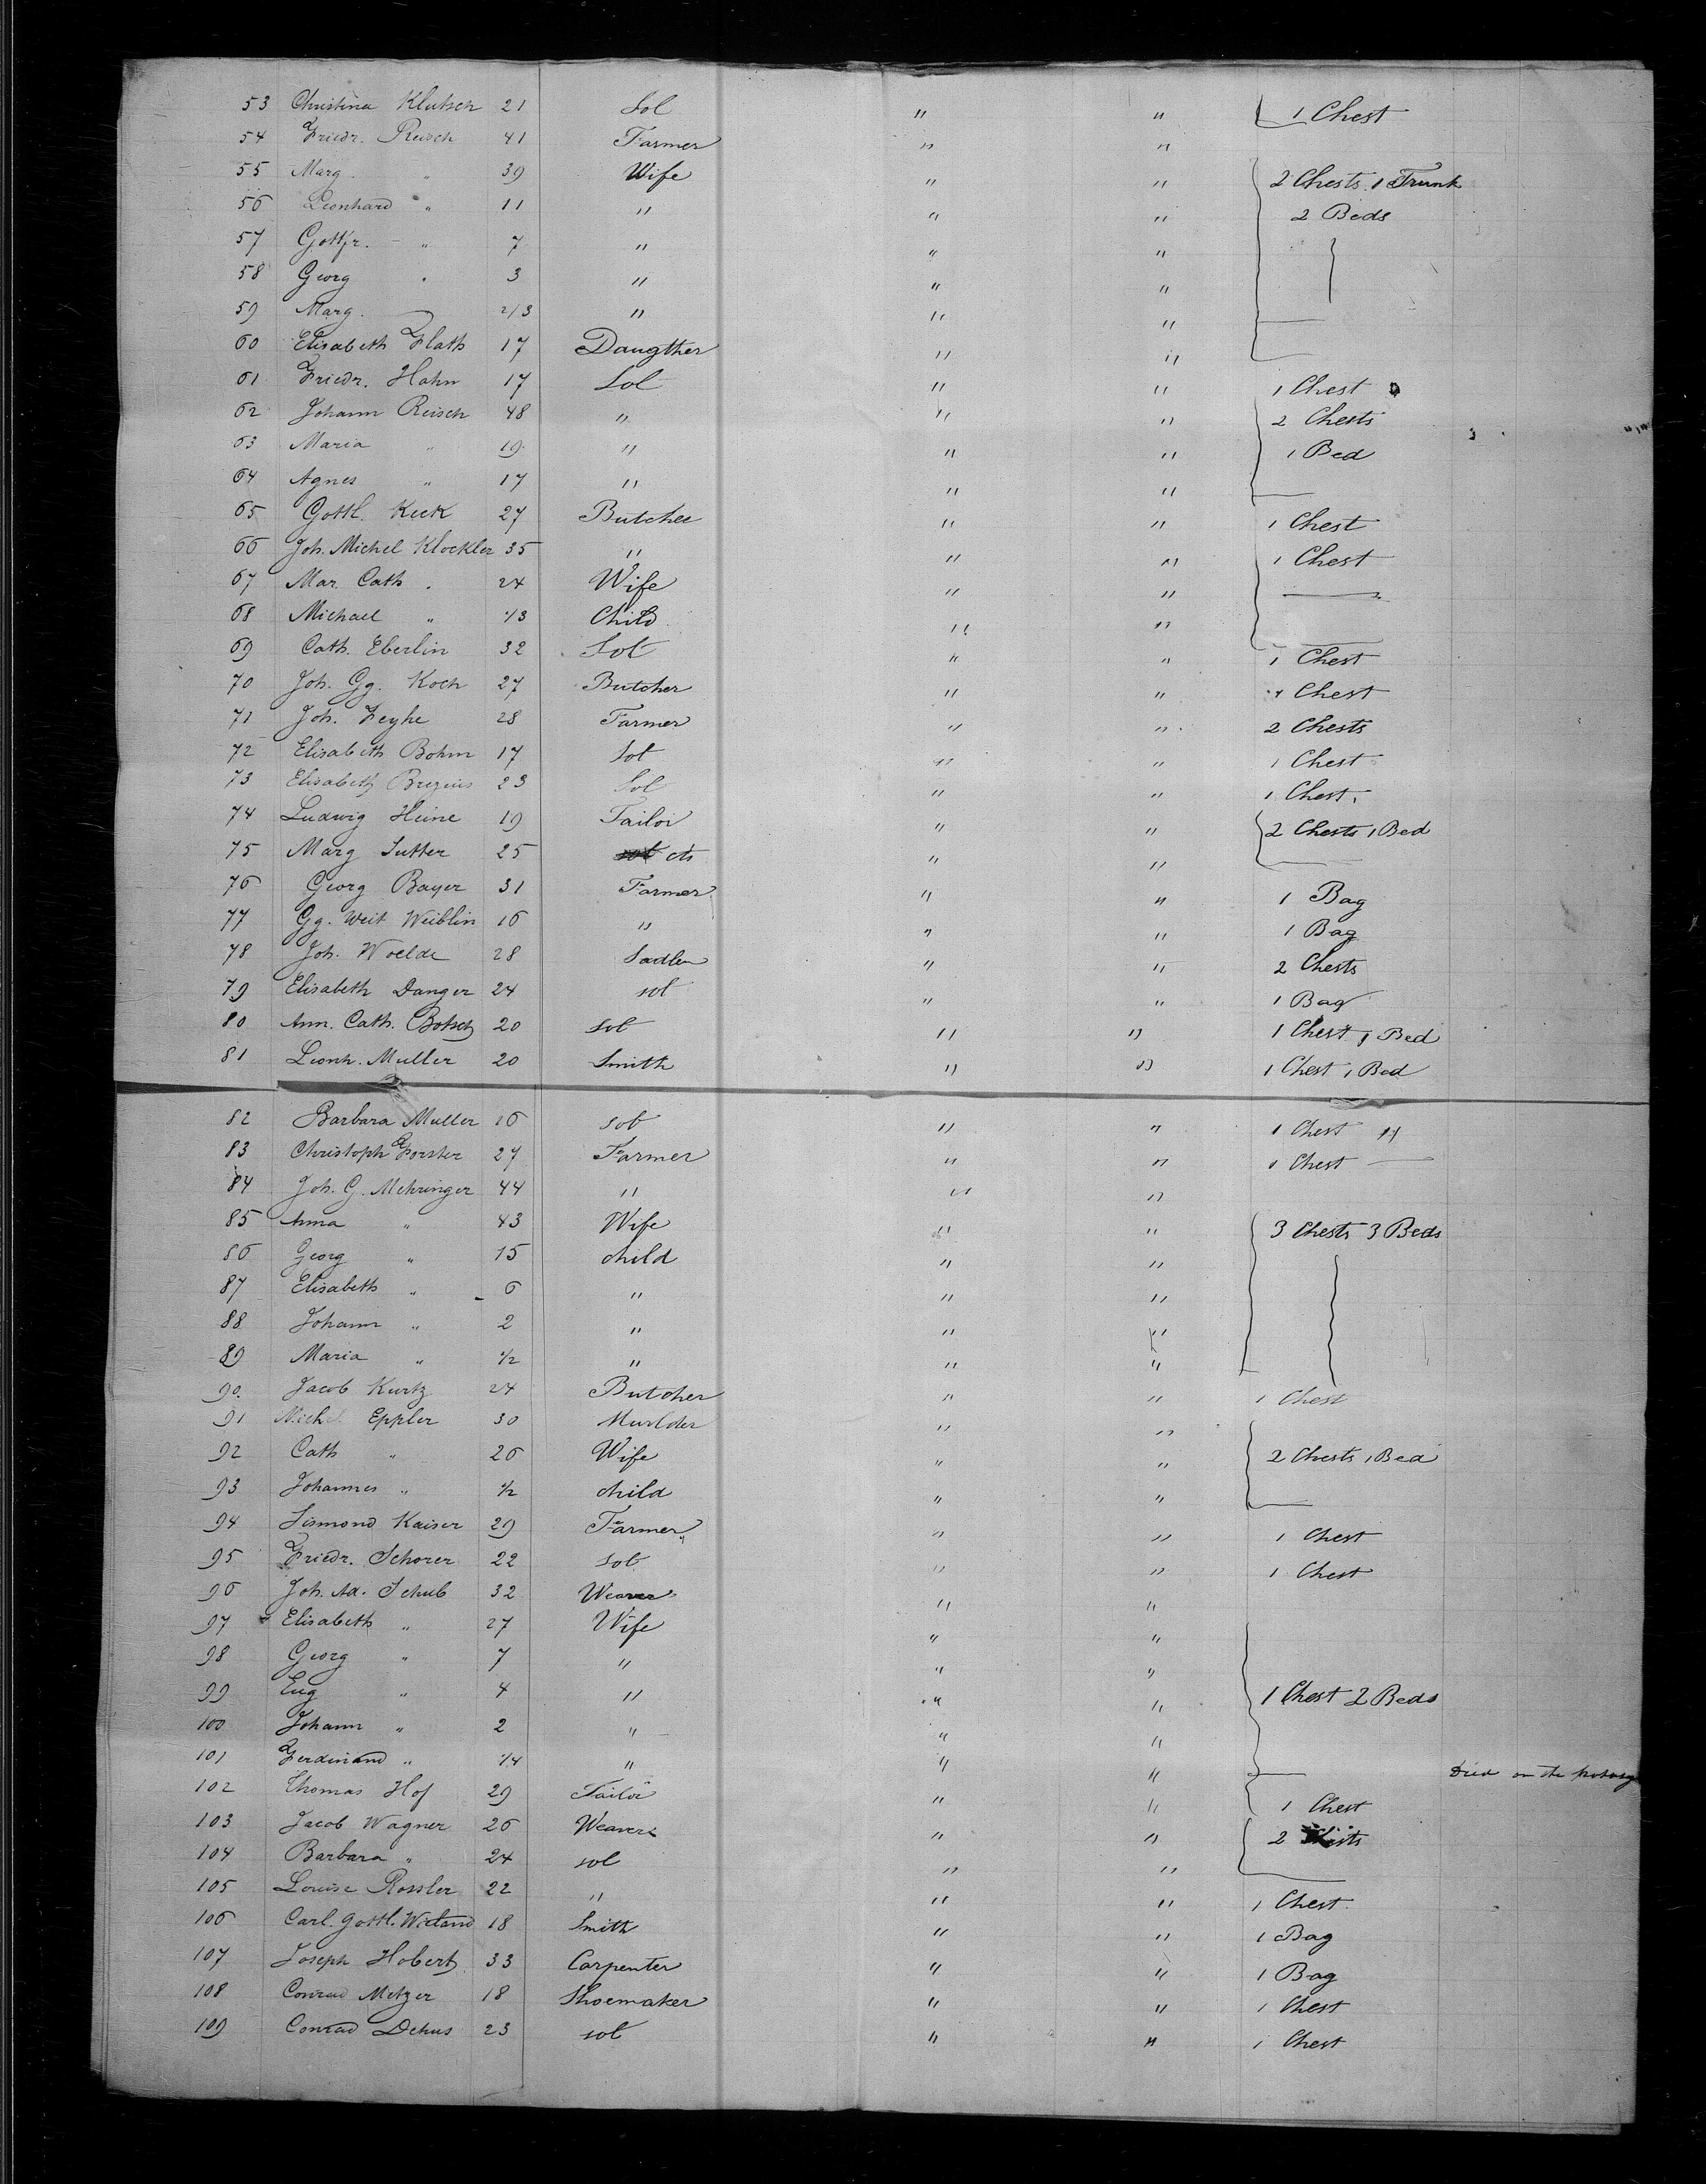 53 Christina Klutsch 21 Sol " " 1 Chest
54 Friedr. Reisch 41 Farmer " "
55 Marg. " 39 Wife " " 2 Chests 1 Trunk
56 Leonhard " 11 " " " 2 Beds
57 Gottfr. " 7 " " "
58 Georg " 3 " " "
59 Marg. 2/3 " " "
60 Elisabeth Flath 17 Daugther " "
61 Friedr. Hahn 17 Sol " " 1 Chest
62 Johann Reisch 48 " " " 2 Chests
63 Maria " 19 " " " 1 Bed
64 Agnes " 17 " " "
65 Gottl. Keck 27 Butcher " " 1 Chest
66 Joh. Michel Klockler 35 " " " 1 Chest
67 Mar. Cath " 24 Wife " "
68 Michael " 1/3 Child " "
69 Cath. Eberlin 32 Sol " " 1 Chest
70 Joh. Gg. Koch 27 Butcher " " 1 Chest
71 Joh. Feyhe 28 Farmer " " 2 Chests
72 Elisabeth Bohm 17 Sol " " 1 Chest
73 Elisabeth 23 Sol " " 1 Chest
74 Ludwig Heine 19 Tailor " " 2 Chests 1 Bed
75 Marg Sutter 25 " "
76 Georg Bayer 31 Farmer " " 1 Bag
77 Gg. Weit Weiblin 16 " " " 1 Bag
78 Joh. Woelde 28 Sadler " " 2 Chests
79 Elisabeth Danger 24 sol " " 1 Bag
80 Ann. Cath. Botsch 20 Sol " " 1 Chest 1 Bed
81 Leonh. Muller 20 Smith " " 1 Chest 1 Bed
82 Barbara Muller 16 sol " " 1 Chest "
83 Christoph Forster 27 Farmer " " 1 Chest
84 Joh. G. Mehringer 44 " " "
85 Anna " 43 Wife " " 3 Chests 3 Beds
86 Georg " 15 child " "
87 Elisabeth " 6 " " "
88 Johann " 2 " " "
89 Maria " 1/2 " " "
90. Jacob Kurtz 24 Butcher " " 1 Chest
91 Michel Eppler 30 " "
92 Cath " 26 Wife " " 2 Chests 1 Bed
93 Johannes " 1/2 child " "
94 Sismond Kaiser 29 Farmer " " 1 Chest
95 Friedr. Schorer 22 sol " " 1 Chest
96 Joh. Ad. Schub 32 Weaver " "
97 Elisabeth " 27 Wife " "
98 Georg " 7 " " "
99 Eug " 4 " " " 1 Chest 2 Beds
100 Johann " 2 " " "
101 Ferdinand " 1/4 " " " Died on the
102 Thomas Hof 29 Tailor " " 1 Chest
103 Jacob Wagner 26 Weaver " " 2 Chests
104 Barbara " 24 sol " "
105 Louise Rossler 22 " " " 1 Chest
106 Carl. Gottl. Wieland 18 Smith " " 1 Bag
107 Joseph Hobertz 33 Carpenter " " 1 Bag
108 Conrad Metzer 18 Shoemaker " " 1 Chest
109 Conrad Dehus 23 sol " " 1 Chest